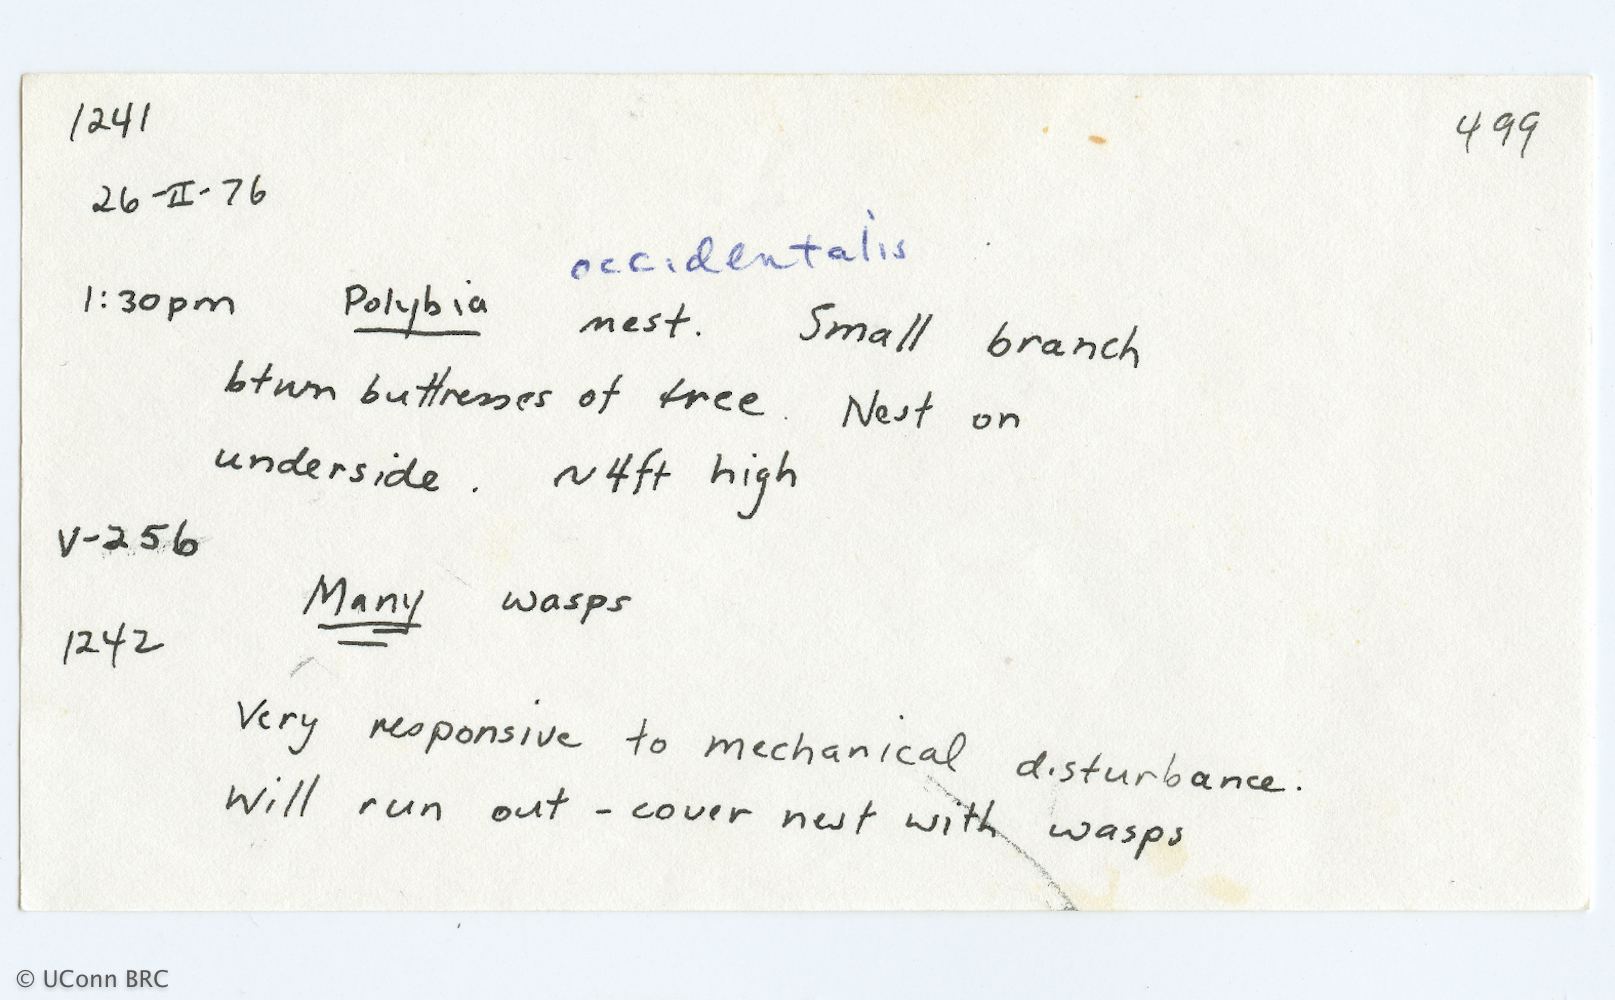 1241 499
26-II-76
occidentalis
1:30pm Polybia nest. Small branch
btwn buttresses of tree. Nest on
underside. ~4ft high
V-256
Many wasps
1242
Very responsive to mechanical disturbance.
Will run out - cover nest with wasps
© UConn BRC